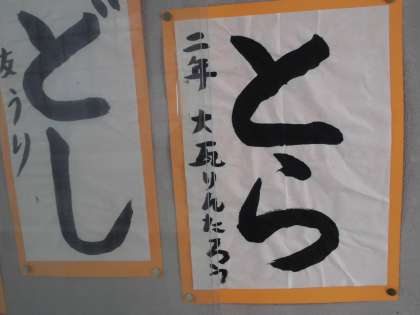 とら
二年 大瓦りんたろう
どし
うり